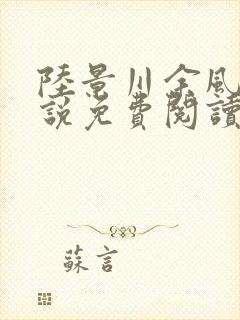 陸景川余風
說免費閱讀
蘇言